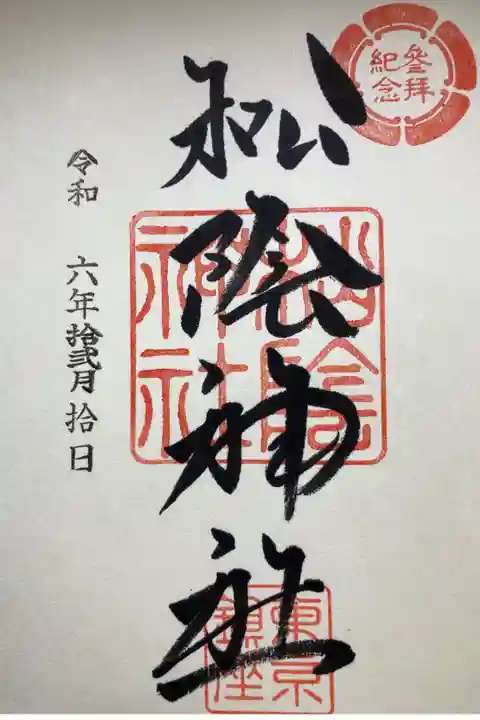 參拜
紀念
松陰神社
松陰
神社
東京
鎮座
令和 六年 拾弐月 拾日